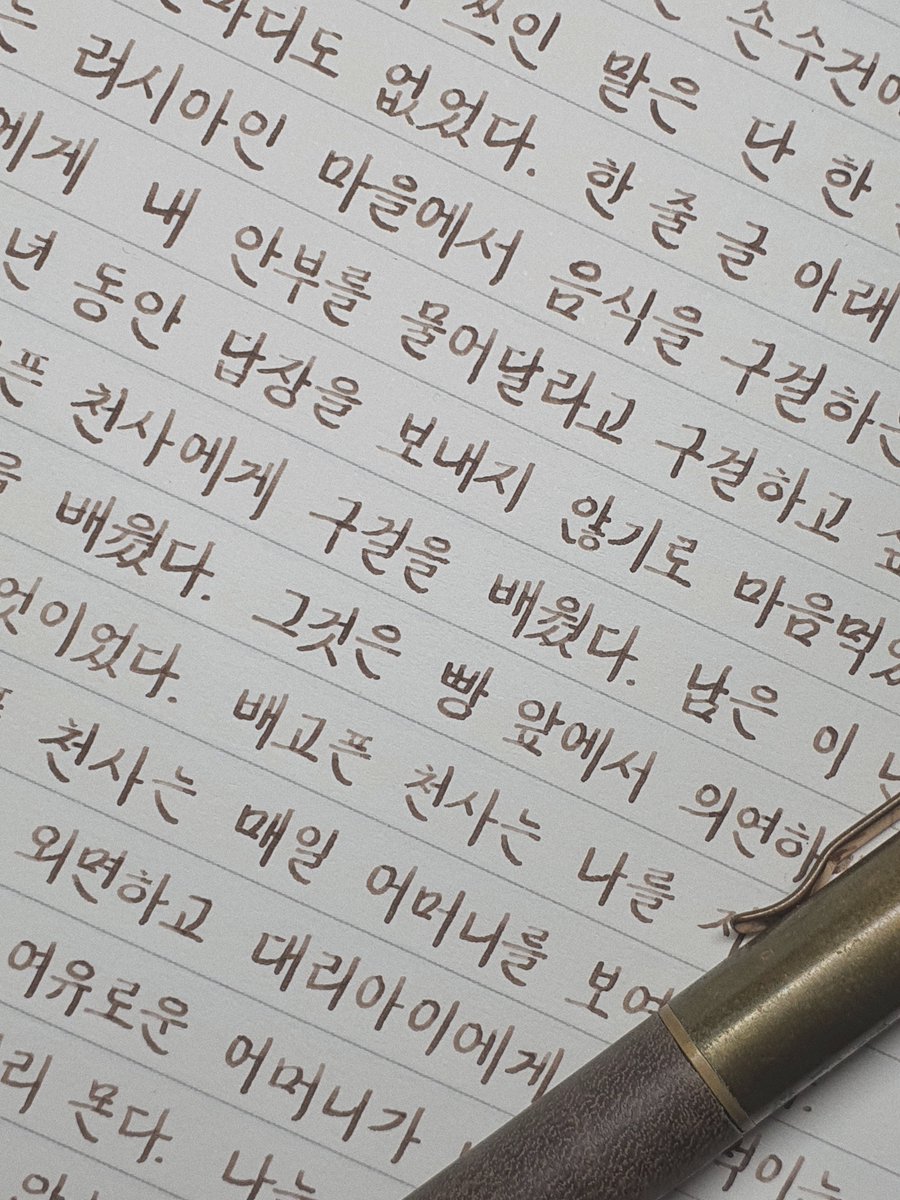 손수건에
쓰인 말은 단 한
마디도 없었다. 한 줄 글 아래
러시아인 마을에서 음식을 구걸하는
에게 내 안부를 물어달라고 구걸하고
년 동안 답장을 보내지 않기로 마음먹었
픈 천사에게 구걸을 배웠다. 남은 이
을 배웠다. 그것은 빵 앞에서 의연해
엇이었다. 배고픈 천사는 나를
천사는 매일 어머니를 보여
외면하고 대리아이에게
여유로운 어머니가
리 몬다. 나는